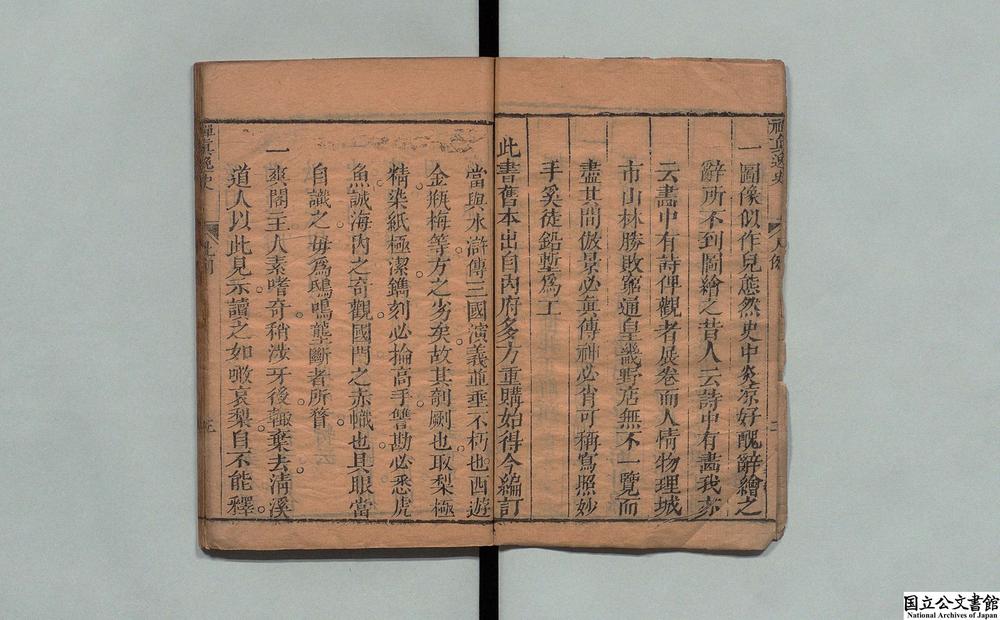 禪真逸史 凡例
一圖像似作兒態然史中炎凉好醜辭繪之
辭所不到圖繪之昔人云詩中有畵我亦
云畵中有詩俾觀者展卷而人情物理城
市山林勝敗窮通皇畿野店無不一覽而
盡其間倣景必真傳神必肖可稱寫照妙
手奚徒鉛塹爲工
此書舊本出自內府多方重購始得今編訂
當與水滸傳三國演義並垂不朽也西遊
金瓶梅等方之劣矣故其剞劂也取梨極
精染紙極潔鐫刻必掄高手讐勘必悉虎
魚誠海內之奇觀國門之赤幟也具眼當
自識之毋爲鴟鳴壟斷者所瞀
一爽閣主人素嗜奇稍涉牙後輒棄去清溪
道人以此見示讀之如啖哀梨自不能釋
禪真逸史 凡例
国立公文書館
National Archives of Japan